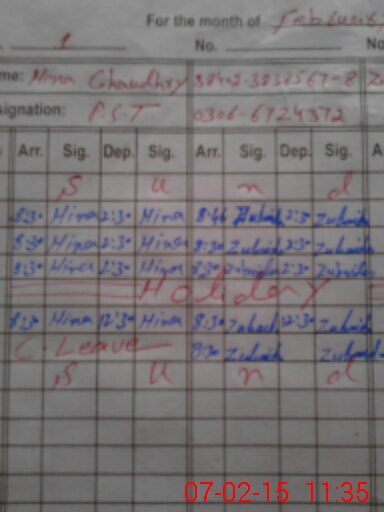 For the month of February
1 No. No
me: Hina Chaudhry 38402-3838567-8
signation: P.S.T 0306-6724372
Arr. Sig. Dep. Sig. Arr. Sig. Dep. Sig. A
S u n d
8:30 Hina 2:30 Hina 8:46 Zubaid 2:30 Zubaid
8:30 Hina 2:30 Hina 8:30 Zubaid 2:30 Zubaid
8:30 Hina 2:30 Hina 8:30 Zubaid 2:30 Zubaid
Holiday
8:30 Hina 12:30 Hina 8:30 Zubaid 12:30 Zubaid
C. Leave 8:30 Zubaid Zubaid
S u n d
07-02-15 11:35